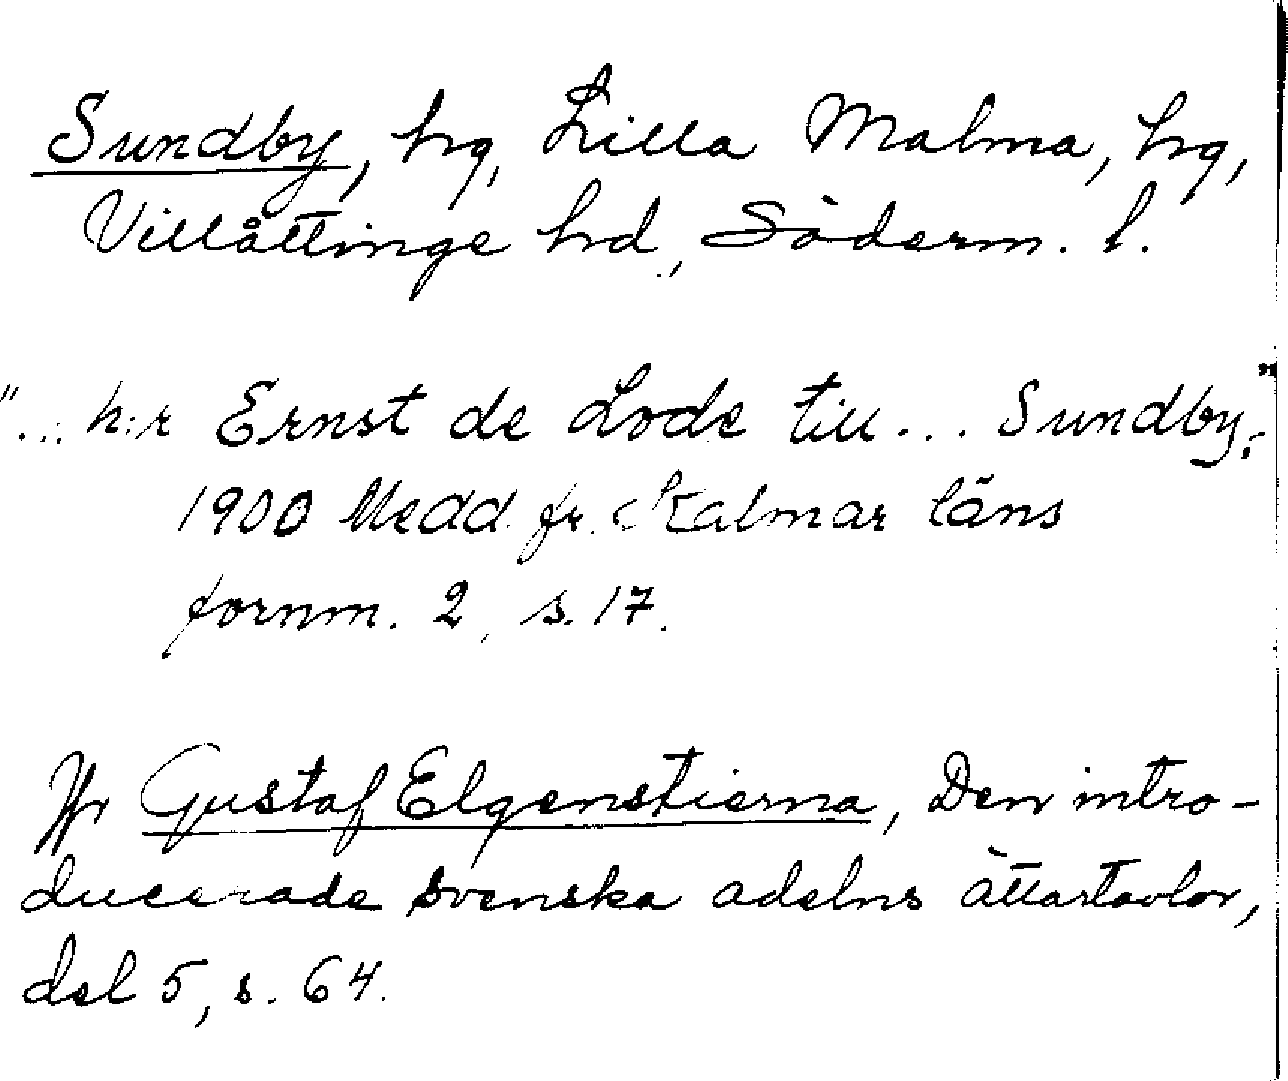 Sundby, hg, Lilla Malma, hg,
Villåttinge hd, Söderm. l.
"... h:r Ernst de Lode till... Sundby."
1900 Medd. fr. Kalmar läns
fornm. 2, s. 17.
Jfr Gustaf Elgenstierna, Den intro-
ducerade svenska adelns ättartavlor,
del 5, s. 64.